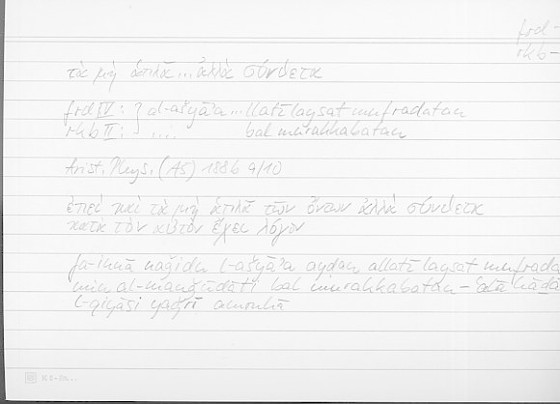 frd-
rkb-
τὰ μὴ ἁπλᾶ ... ἀλλὰ σύνθετα
frd IV: } al-ašyāʾa ... llatī laysat mufradatan
rkb II: } .... bal murakkabatan
Arist. Phys. (A5) 188b 9/10
ἐπεὶ καὶ τὰ μὴ ἁπλᾶ τῶν ὄντων ἀλλὰ σύνθετα
κατὰ τὸν αὐτὸν ἔχει λόγον
fa-innā naǧidu l-ašyāʾa ayḍan allatī laysat mufrada
min al-mawǧūdāti bal murakkabatan – ʿalā hāḏā
l-qiyāsi yaǧrī amruhā